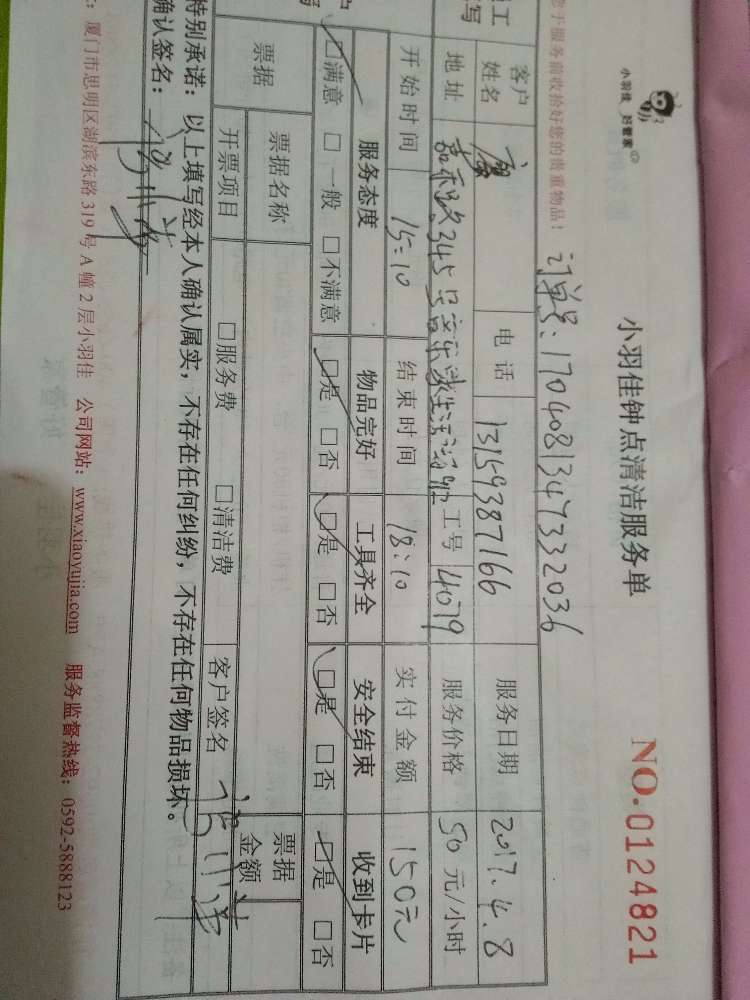 小羽佳 好管家
小羽佳钟点清洁服务单
NO.0124821
您于服务前收拾好您的贵重物品！
订单号：1704081347332036
客户姓名 电话 13159387166 服务日期 2017.4.8
地址 工号 4079 服务价格 50元/小时
开始时间 15:10 结束时间 18:10 实付金额 150元
服务态度 物品完好 工具齐全 安全结束 收到卡片
☑满意 □一般 □不满意 ☑是 □否 ☑是 □否 ☑是 □否 ☑是 □否
票据 票据名称 票据金额
开票项目 □服务费 □清洁费 客户签名
特别承诺：以上填写经本人确认属实，不存在任何纠纷，不存在任何物品损坏。
确认签名：
厦门市思明区湖滨东路319号A幢2层小羽佳 公司网站：www.xiaoyujia.com 服务监督热线：0592-5888123